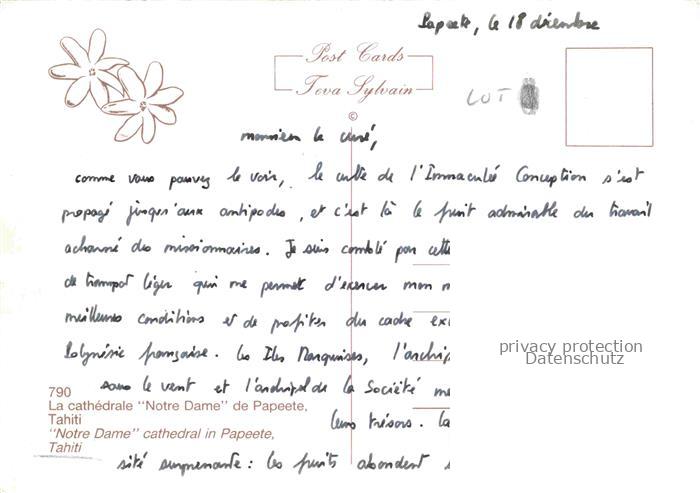 Papeete, le 18 décembre
Post Cards
Teva Sylvain
©
LOT
monsieur le curé,
comme vous pouvez le voir, le culte de l'Immaculée Conception s'est
propagé jusqu'aux antipodes, et c'est là le fruit admirable du travail
acharné des missionnaires. Je suis comblé par cette
de transport léger qui me permet d'exercer mon m
meilleures conditions et de profiter du cadre ex
Polynésie française. Les Iles Marquises, l'archip
sous le vent et l'archipel de la Société me
leurs trésors. La
sité surprenante : les fruits abondent
privacy protection
Datenschutz
790
La cathédrale "Notre Dame" de Papeete,
Tahiti
"Notre Dame" cathedral in Papeete,
Tahiti